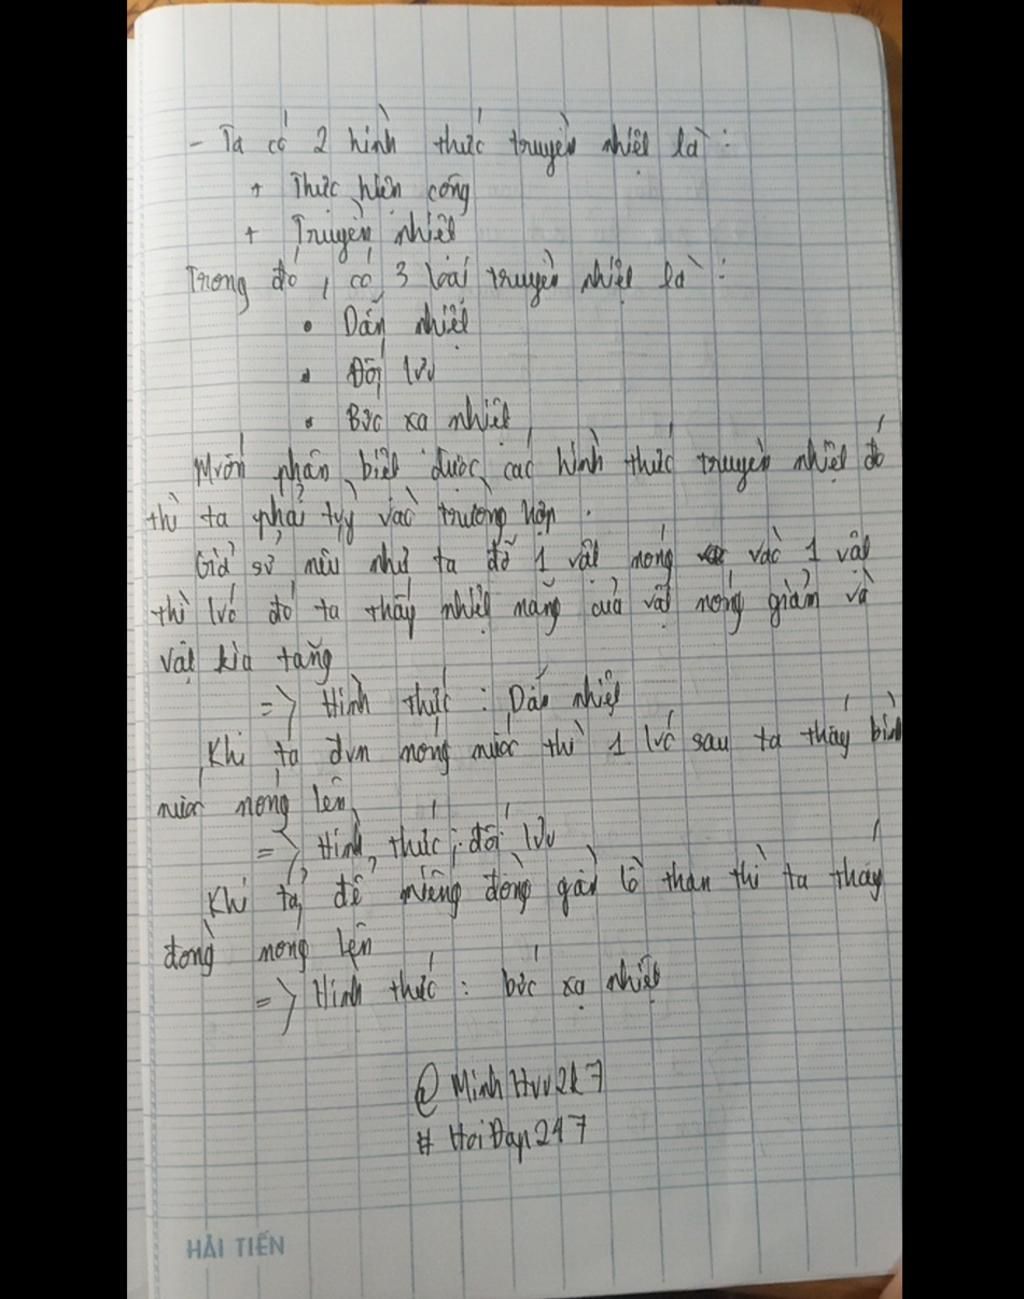 - Ta có 2 hình thức truyền nhiệt là :
+ Thực hiện công
+ Truyền nhiệt
Trong đó , có 3 loại truyền nhiệt là :
• Dẫn nhiệt
• Đối lưu
• Bức xạ nhiệt
Muốn phân biệt được các hình thức truyền nhiệt đó
thì ta phải tùy vào trường hợp .
Giả sử nếu như ta để 1 vật nóng vào 1 vật
thì lúc đó ta thấy nhiệt năng của vật nóng giảm và
vật kia tăng
=> Hình thức : Dẫn nhiệt
Khi ta đun nóng nước thì 1 lúc sau ta thấy bình
nước nóng lên
=> Hình thức : đối lưu
Khi ta để miếng đồng gần lò than thì ta thấy
đồng nóng lên
=> Hình thức : bức xạ nhiệt
@ MinhHuu2k7
# HoiDap247
HẢI TIẾN